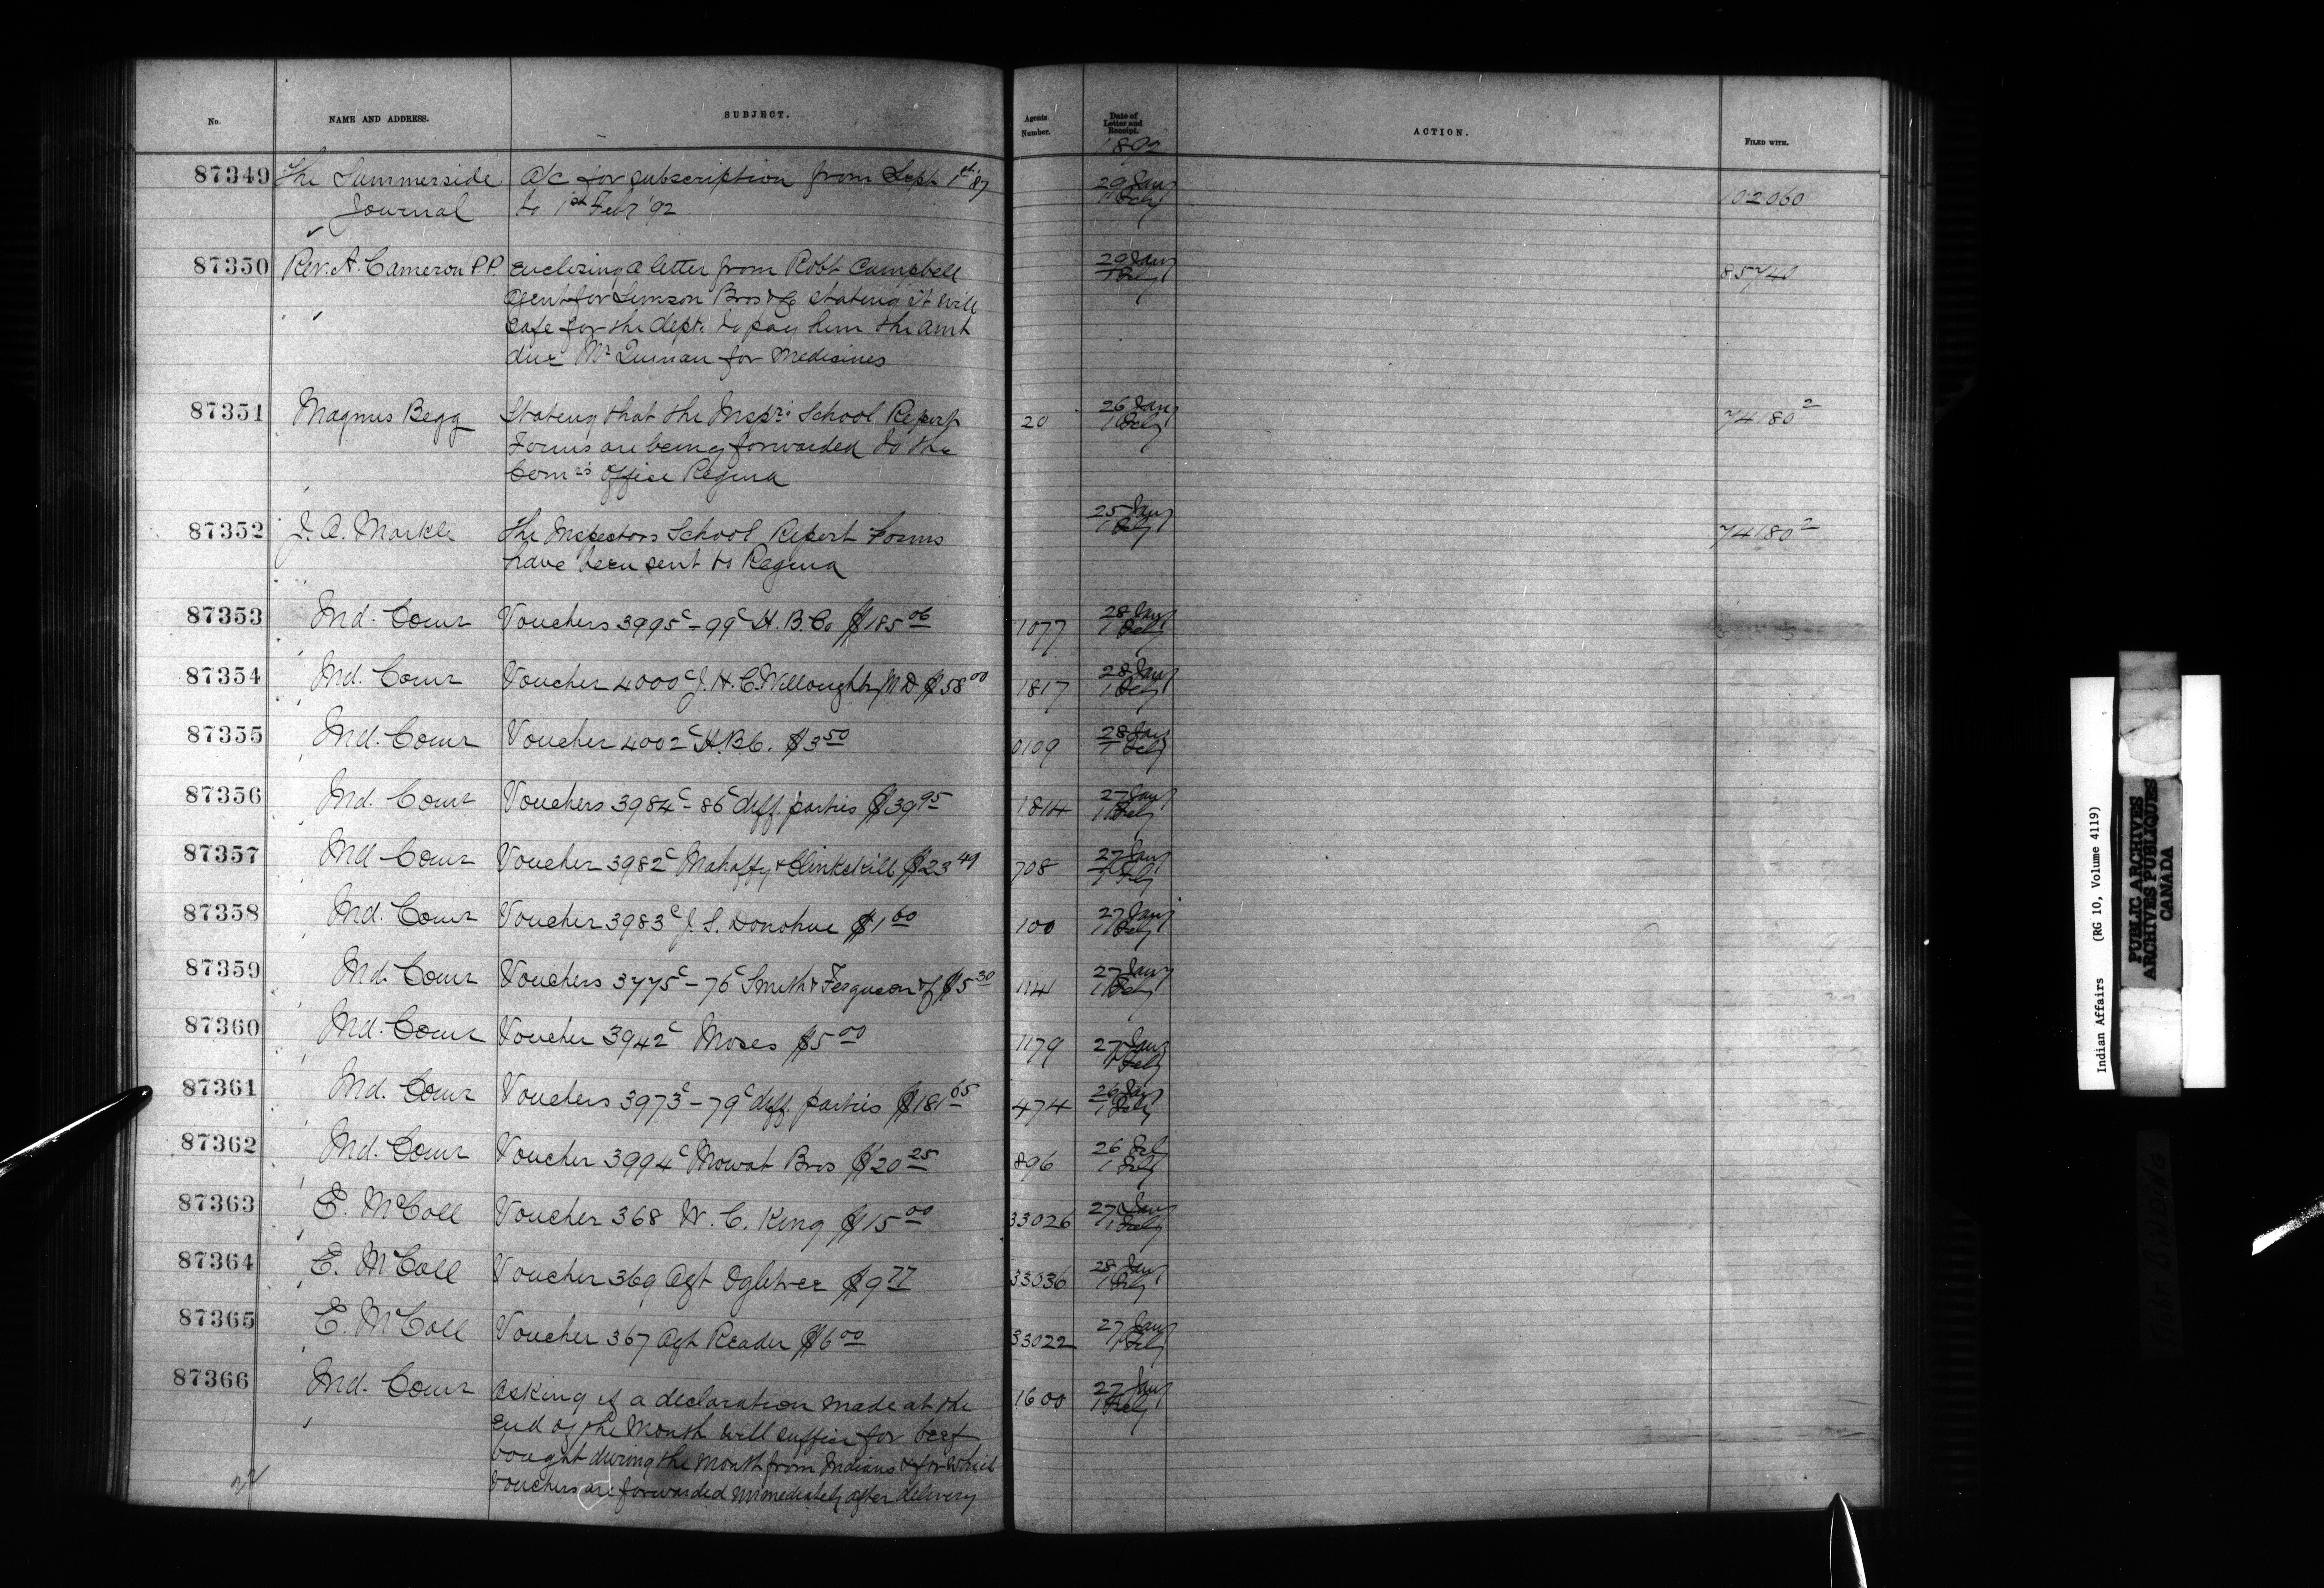 No. NAME AND ADDRESS. SUBJECT. Agents Number. Date of Letter and Receipt. ACTION. FILED WITH.
1892
87349 The Summerside a/c for subscription from Sept 1st '87 29 Jany 102060
Journal to 1st Feby '92 1 Feby
87350 Rev. A. Cameron P.P. enclosing a letter from Robt Campbell 29 Jany 85740
agent for Simson Bros & Co stating it will 1 Feby
safe for the dept. to pay him the amt
due Mr Quinan for medicines
87351 Magnus Begg Stating that the Inspr's School Report 20 26 Jany 74180 2
Forms are being forwarded to the 1 Feby
Comrs office Regina
87352 J. A. Markle The Inspectors School Report Forms 25 Jany 74180 2
have been sent to Regina 1 Feby
87353 Ind. Comr Vouchers 3995c - 99c H. B. Co $185 06 1077 28 Jany
1 Feby
87354 Ind. Comr Voucher 4000c J. H. C. Willoughby M D $58 00 1817 28 Jany
1 Feby
87355 Ind. Comr Voucher 4002c H. B. C. $3 50 0109 28 Jany
1 Feby
87356 Ind. Comr Vouchers 3984c - 86c diff. parties $39 95 1814 27 Jany
1 Feby
87357 Ind Comr Voucher 3982c Mahaffy & Clinkskill $23 49 708 27 Jany
1 Feby
87358 Ind. Comr Voucher 3983c J. S. Donohue $1 60 100 27 Jany
1 Feby
87359 Ind. Comr Vouchers 3775c - 76c Smith & Ferguson & J $5 30 1141 27 Jany
1 Feby
87360 Ind. Comr Voucher 3942c Moses $5 00 1179 27 Jany
1 Feby
87361 Ind. Comr Vouchers 3973c - 79c diff. parties $181 65 474 26 Jany
1 Feby
87362 Ind. Comr Voucher 3994c Mowat Bros $20 25 896 26 Feb
1 Feby
87363 E. McColl Voucher 368 W. C. King $15 00 33026 27 Jany
1 Feby
87364 E. McColl Voucher 369 Agt Ogletree $9 77 33036 28 Jany
1 Feby
87365 E. McColl Voucher 367 Agt Reader $6 00 33022 27 Jany
1 Feby
87366 Ind. Comr Asking if a declaration made at the 1600 27 Jany
end of the Month will suffice for beef 1 Feby
bought during the Month from Indians & for which
Vouchers are forwarded immediately after delivery
Indian Affairs (RG 10, Volume 4119)
PUBLIC ARCHIVES
ARCHIVES PUBLIQUES
CANADA